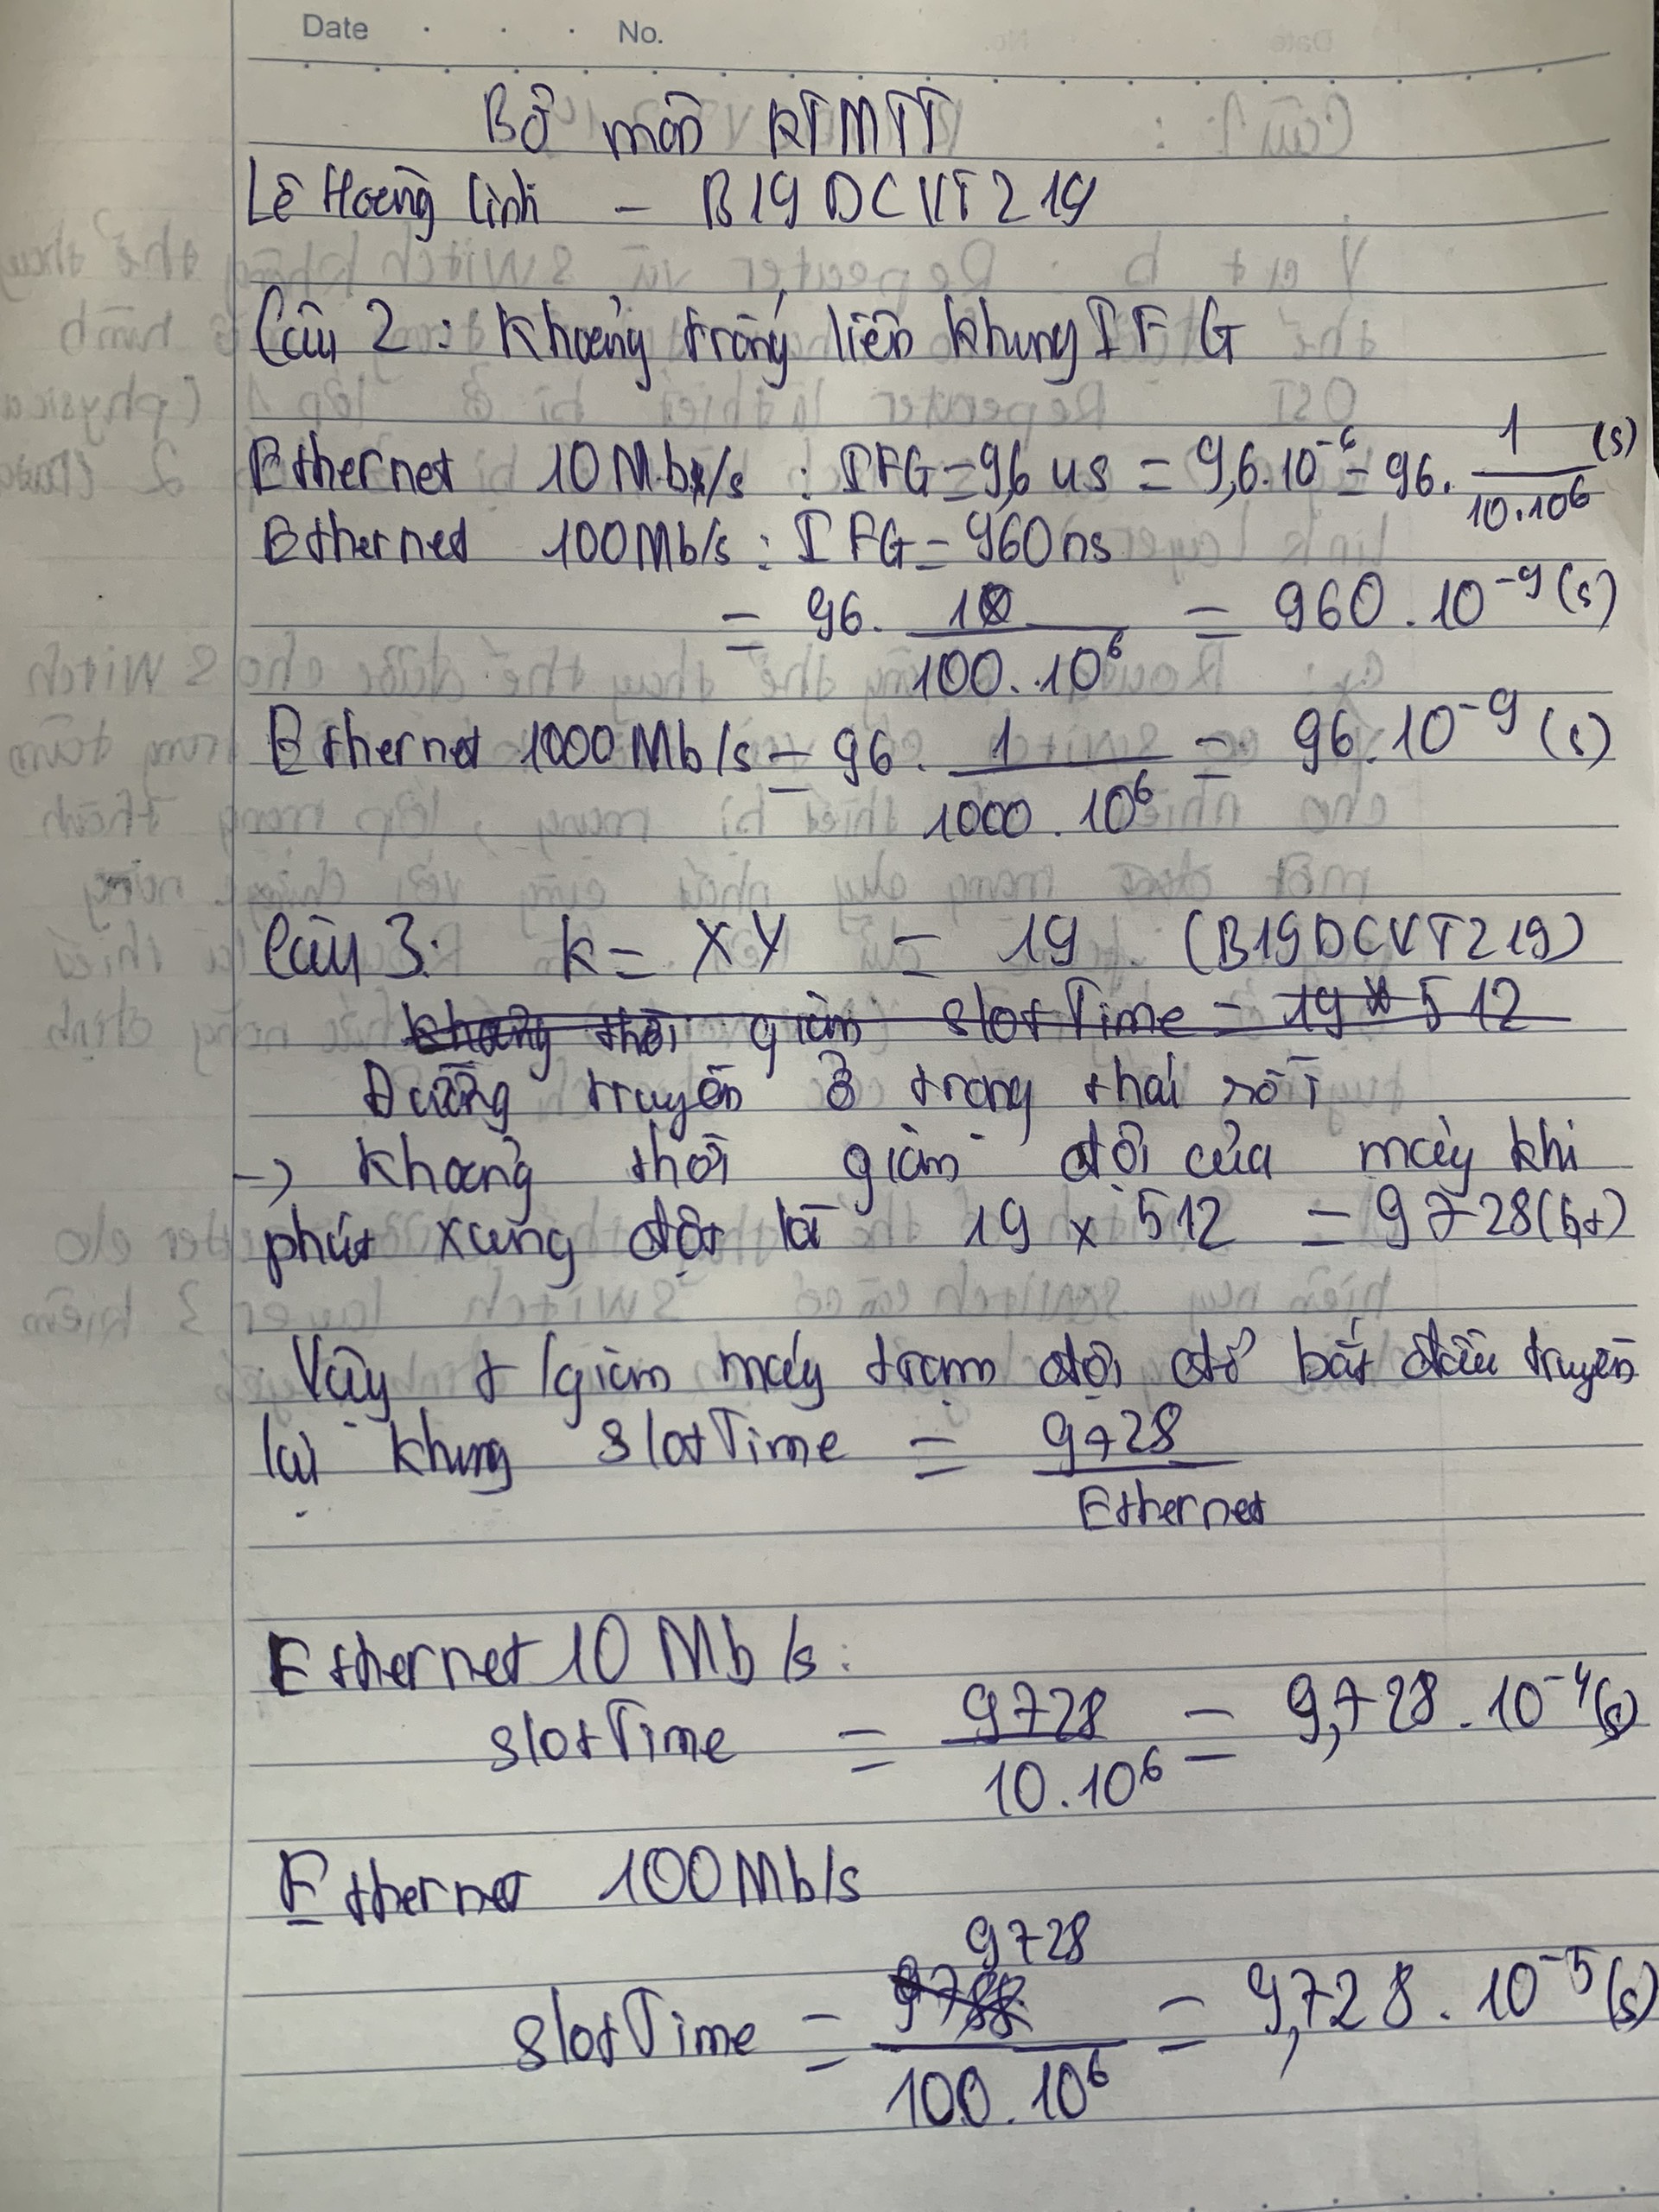 Date . . . No.
Bộ môn KTMTT
Lê Hoàng Linh - B19DCVT219
Câu 2: Khoảng trống liên khung IFG
Ethernet 10Mb/s : IFG = 9,6 us = 9,6.10^-6 = 96. 1/(10.10^6) (s)
Ethernet 100Mb/s : IFG = 960ns
= 96. 10/(100.10^6) = 960.10^-9 (s)
Ethernet 1000Mb/s = 96. 1/(1000.10^6) = 96.10^-9 (s)
Câu 3: k = XY = 19 (B19DCVT219)
khoảng thời gian slotTime = 19 * 512
Đường truyền ở trạng thái rỗi
-> Khoảng thời gian đợi của máy khi
phát xung đột là 19 x 512 = 9728(bt)
Vậy t/gian máy trạm đợi để bắt đầu truyền
lại khung slotTime = 9728/Ethernet
Ethernet 10 Mb/s:
slotTime = 9728/(10.10^6) = 9,728.10^-4(s)
Ethernet 100Mb/s
slotTime = 9728/(100.10^6) = 9,728.10^-5(s)